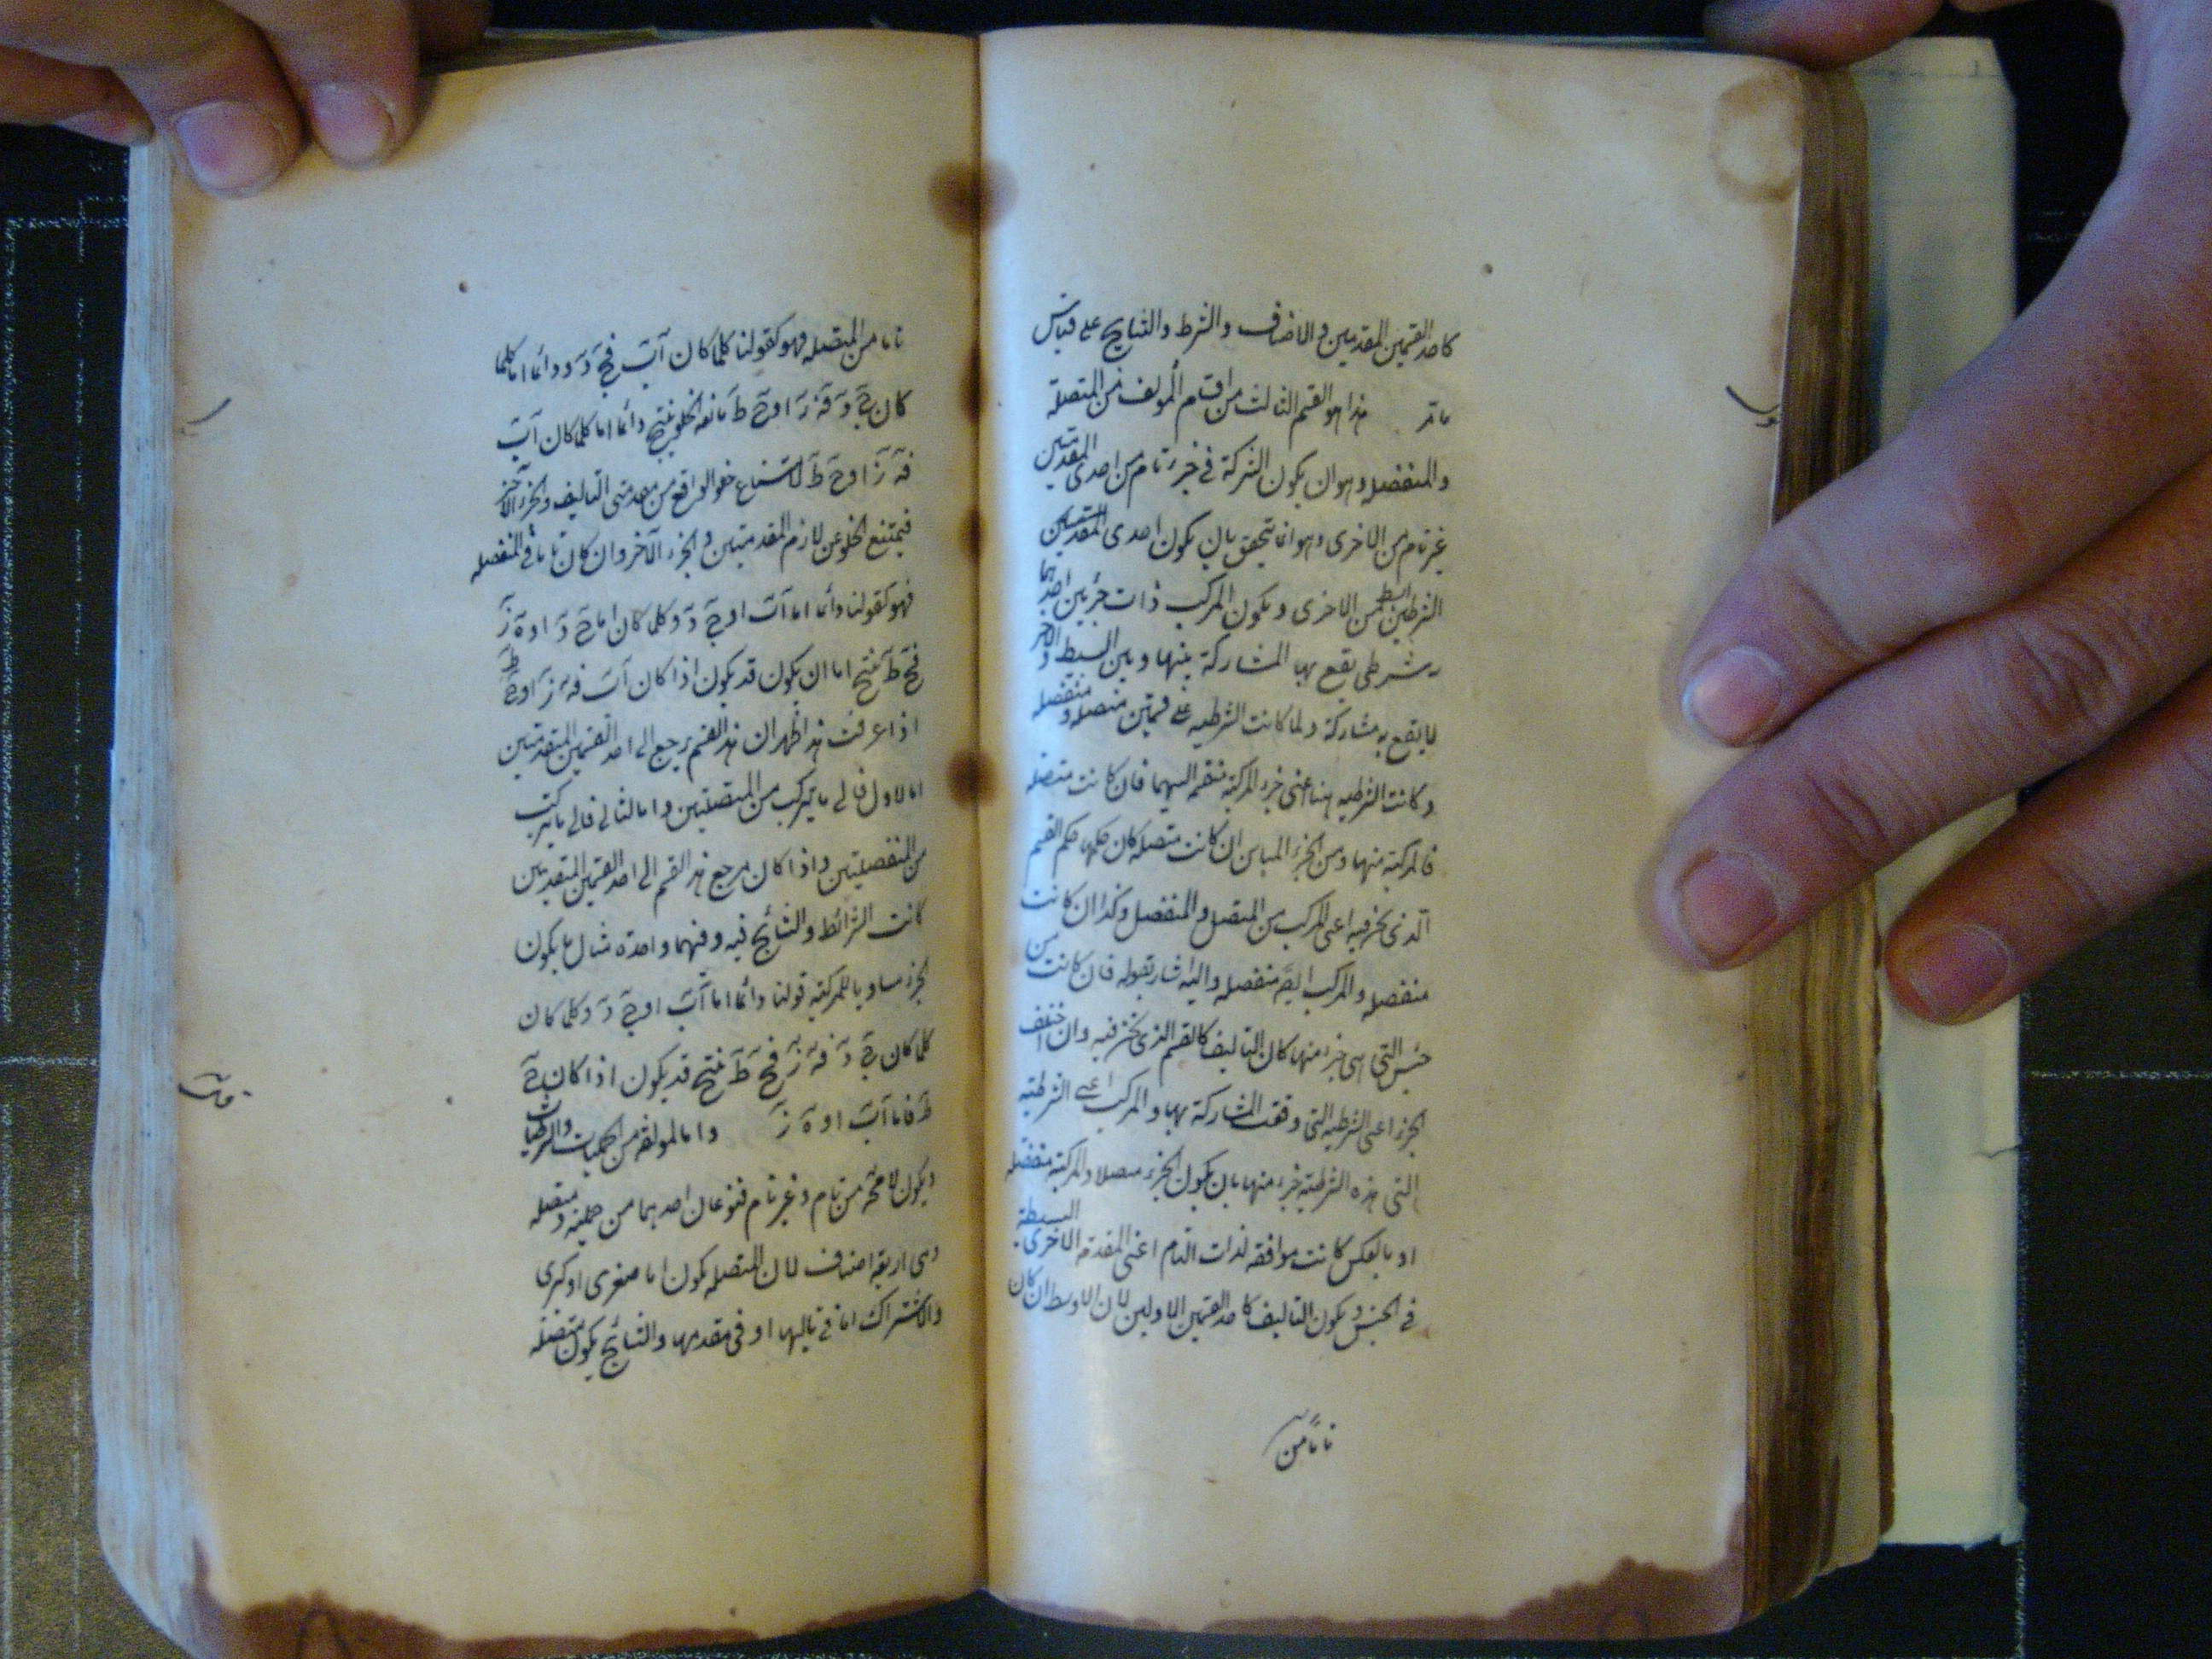 كاحد القسمين المقدمين و الاضاف والشرط والنتايج على قياس
مامر هذا هو القسم الثالث من اقسام المولف من المتصله
والمنفصله وهو ان يكون الشركة في جزء تام من احدى المقدمتين
غير تام من الاخرى وهو انما يتحقق بان يكون احدى المقدمتين
الشرطيتين ابسط من الاخرى ويكون المركب ذات جزئين احدهما
شرطى يقع بها المشاركة بينها وبين البسيط والاخر
لا يقع به مشاركة ولما كانت الشرطيه على قسمين متصله ومنفصله
وكانت الشرطيه هنا اعنى جزء المركبة منقسمه اليهما فان كانت متصله
فالمركبة منها ومن الجزء المباين ان كانت متصله كان حكمها حكم القسم
الذى نحن فيه اعنى المركب من المتصل والمنفصل وكذا ان كانت
منفصله والمركب ايضا منفصله واليه اشار بقوله فان كانت من
جنس التى هى جزء منها كان التاليف كالقسم الذى نحن فيه وان اختلف
الجزء اعنى الشرطيه التى وقعت المشاركة بها والمركب اعنى الشرطية
التى هذه الشرطية جزء منها بان يكون الجزء متصلا والمركبة منفصله
او بالعكس كانت موافقه لذات التام اعنى المقدمه الاخرى البسيطة
في الجنس ويكون التاليف كاحد القسمين الاولين لان الاوسط ان كان
تاما من
تاما من المتصله فهو كقولنا كلما كان آب فج د ودائما اما كلما
كان ج د فه ز او ح ط مانعه الخلو ينتج دائما اما كلما كان آب
فه ز او ح ط لامتناع خلو الواقع من مقدمتى التاليف والجزء الآخر
فيمتنع الخلو عن لازم المقدمتين و الجزء الآخر وان كان تاما في المنفصله
فهو كقولنا دائما اما آب او ج د وكلما كان اما ج د او ه ز
فح ط ينتج اما ان يكون قد يكون اذا كان آب فه ز او ح ط
اذا عرفت هذا ظهر ان هذا القسم يرجع الى احد القسمين المتقدمين
اما الاول فالى ما يتركب من المتصلتين واما الثانى فالى ما يتركب
من المنفصلتين واذا كان مرجع هذا القسم الى احد القسمين المتقدمين
كانت الشرائط والنتائج فيه وفيهما واحدة مثال ما يكون
الجزء مساويا للمركبة قولنا دائما اما آب او ج د وكلما كان
كلما كان ج د فه ز فح ط ينتج قد يكون اذا كان ح
ط فاما آب او ه ز واما المولفة من الحمليات والشرطيات
ويكون من تام وغير تام فنوعان احدهما من حمليه ومتصله
وهى اربعة اصناف لان المتصله يكون اما صغرى او كبرى
والاشتراك اما في تاليها او في مقدمها والنتائج يكون متصله